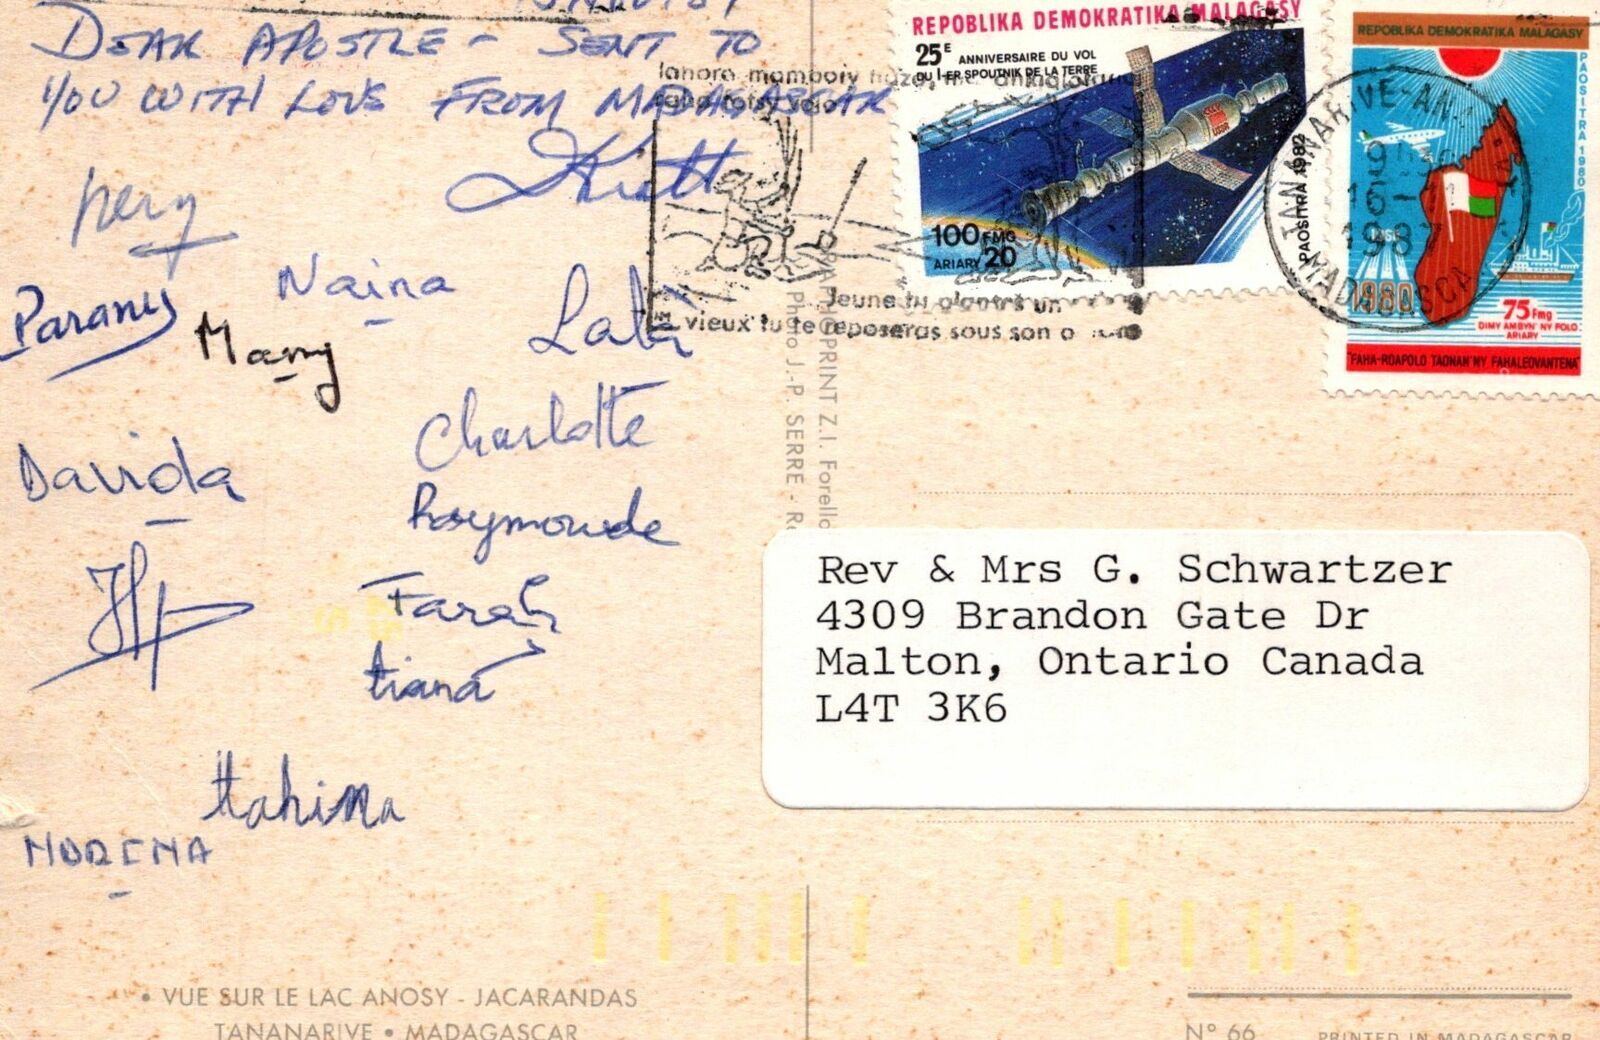 DEAR APOSTLE - SENT TO
YOU WITH LOVE FROM MADAGASCAR
pery
Naina
Parany
Many
Lala
Davida
Charlotte
Raymonde
Farah
tiana
Hahina
REPOBLIKA DEMOKRATIKA MALAGASY
25E ANNIVERSAIRE DU VOL
DU 1-ER SPOUTNIK DE LA TERRE
USSR
100 FMG
ARIARY 20
PAOSITRA 1982
REPOBLIKA DEMOKRATIKA MALAGASY
PAOSITRA 1980
1980
75 Fmg
DIMY AMBYN'NY FOLO
ARIARY
"FAHA-ROAPOLO TAONAN'NY FAHALEOVANTENA"
TANANARIVE
1987
MADAGASCAR
Jeune tu plantes un
vieux tu te reposeras sous son
GRAPHOPRINT Z.I. Forello
Photo J.-P. SERRE
Rev & Mrs G. Schwartzer
4309 Brandon Gate Dr
Malton, Ontario Canada
L4T 3K6
• VUE SUR LE LAC ANOSY - JACARANDAS
TANANARIVE • MADAGASCAR
N° 66
PRINTED IN MADAGASCAR